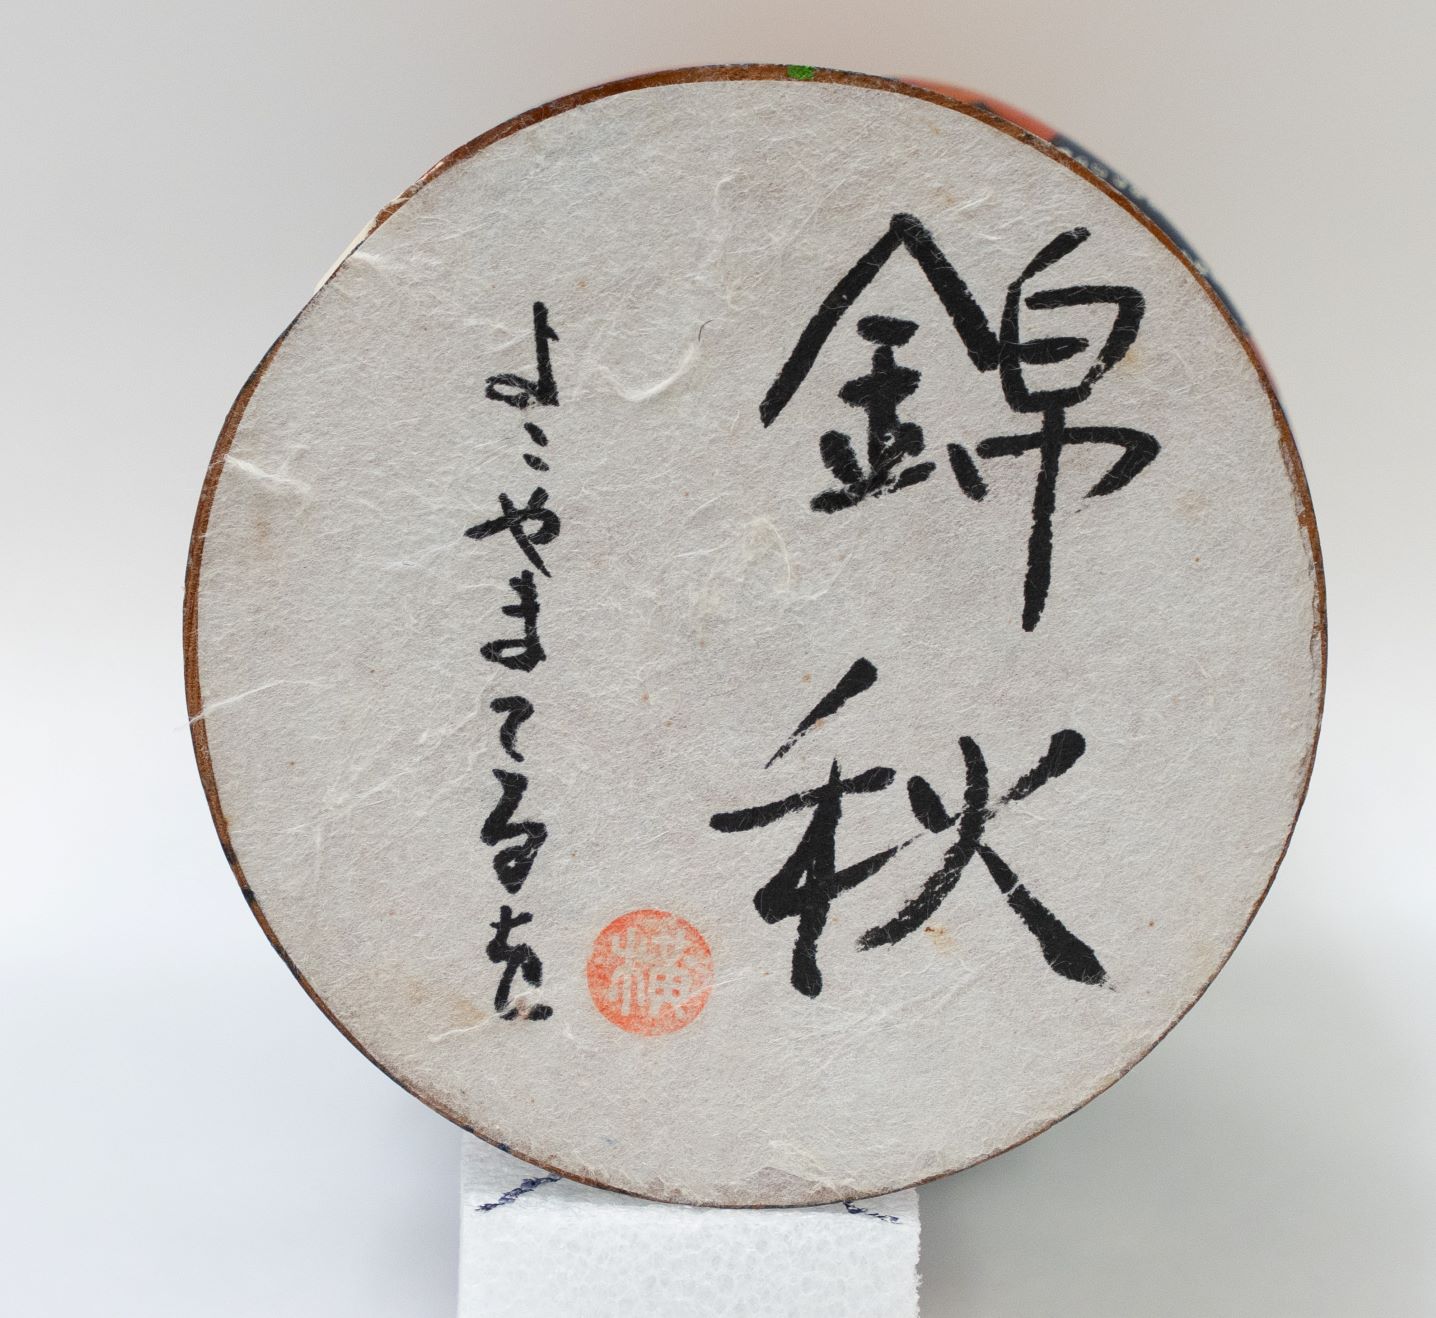 錦秋
よこやまてるを